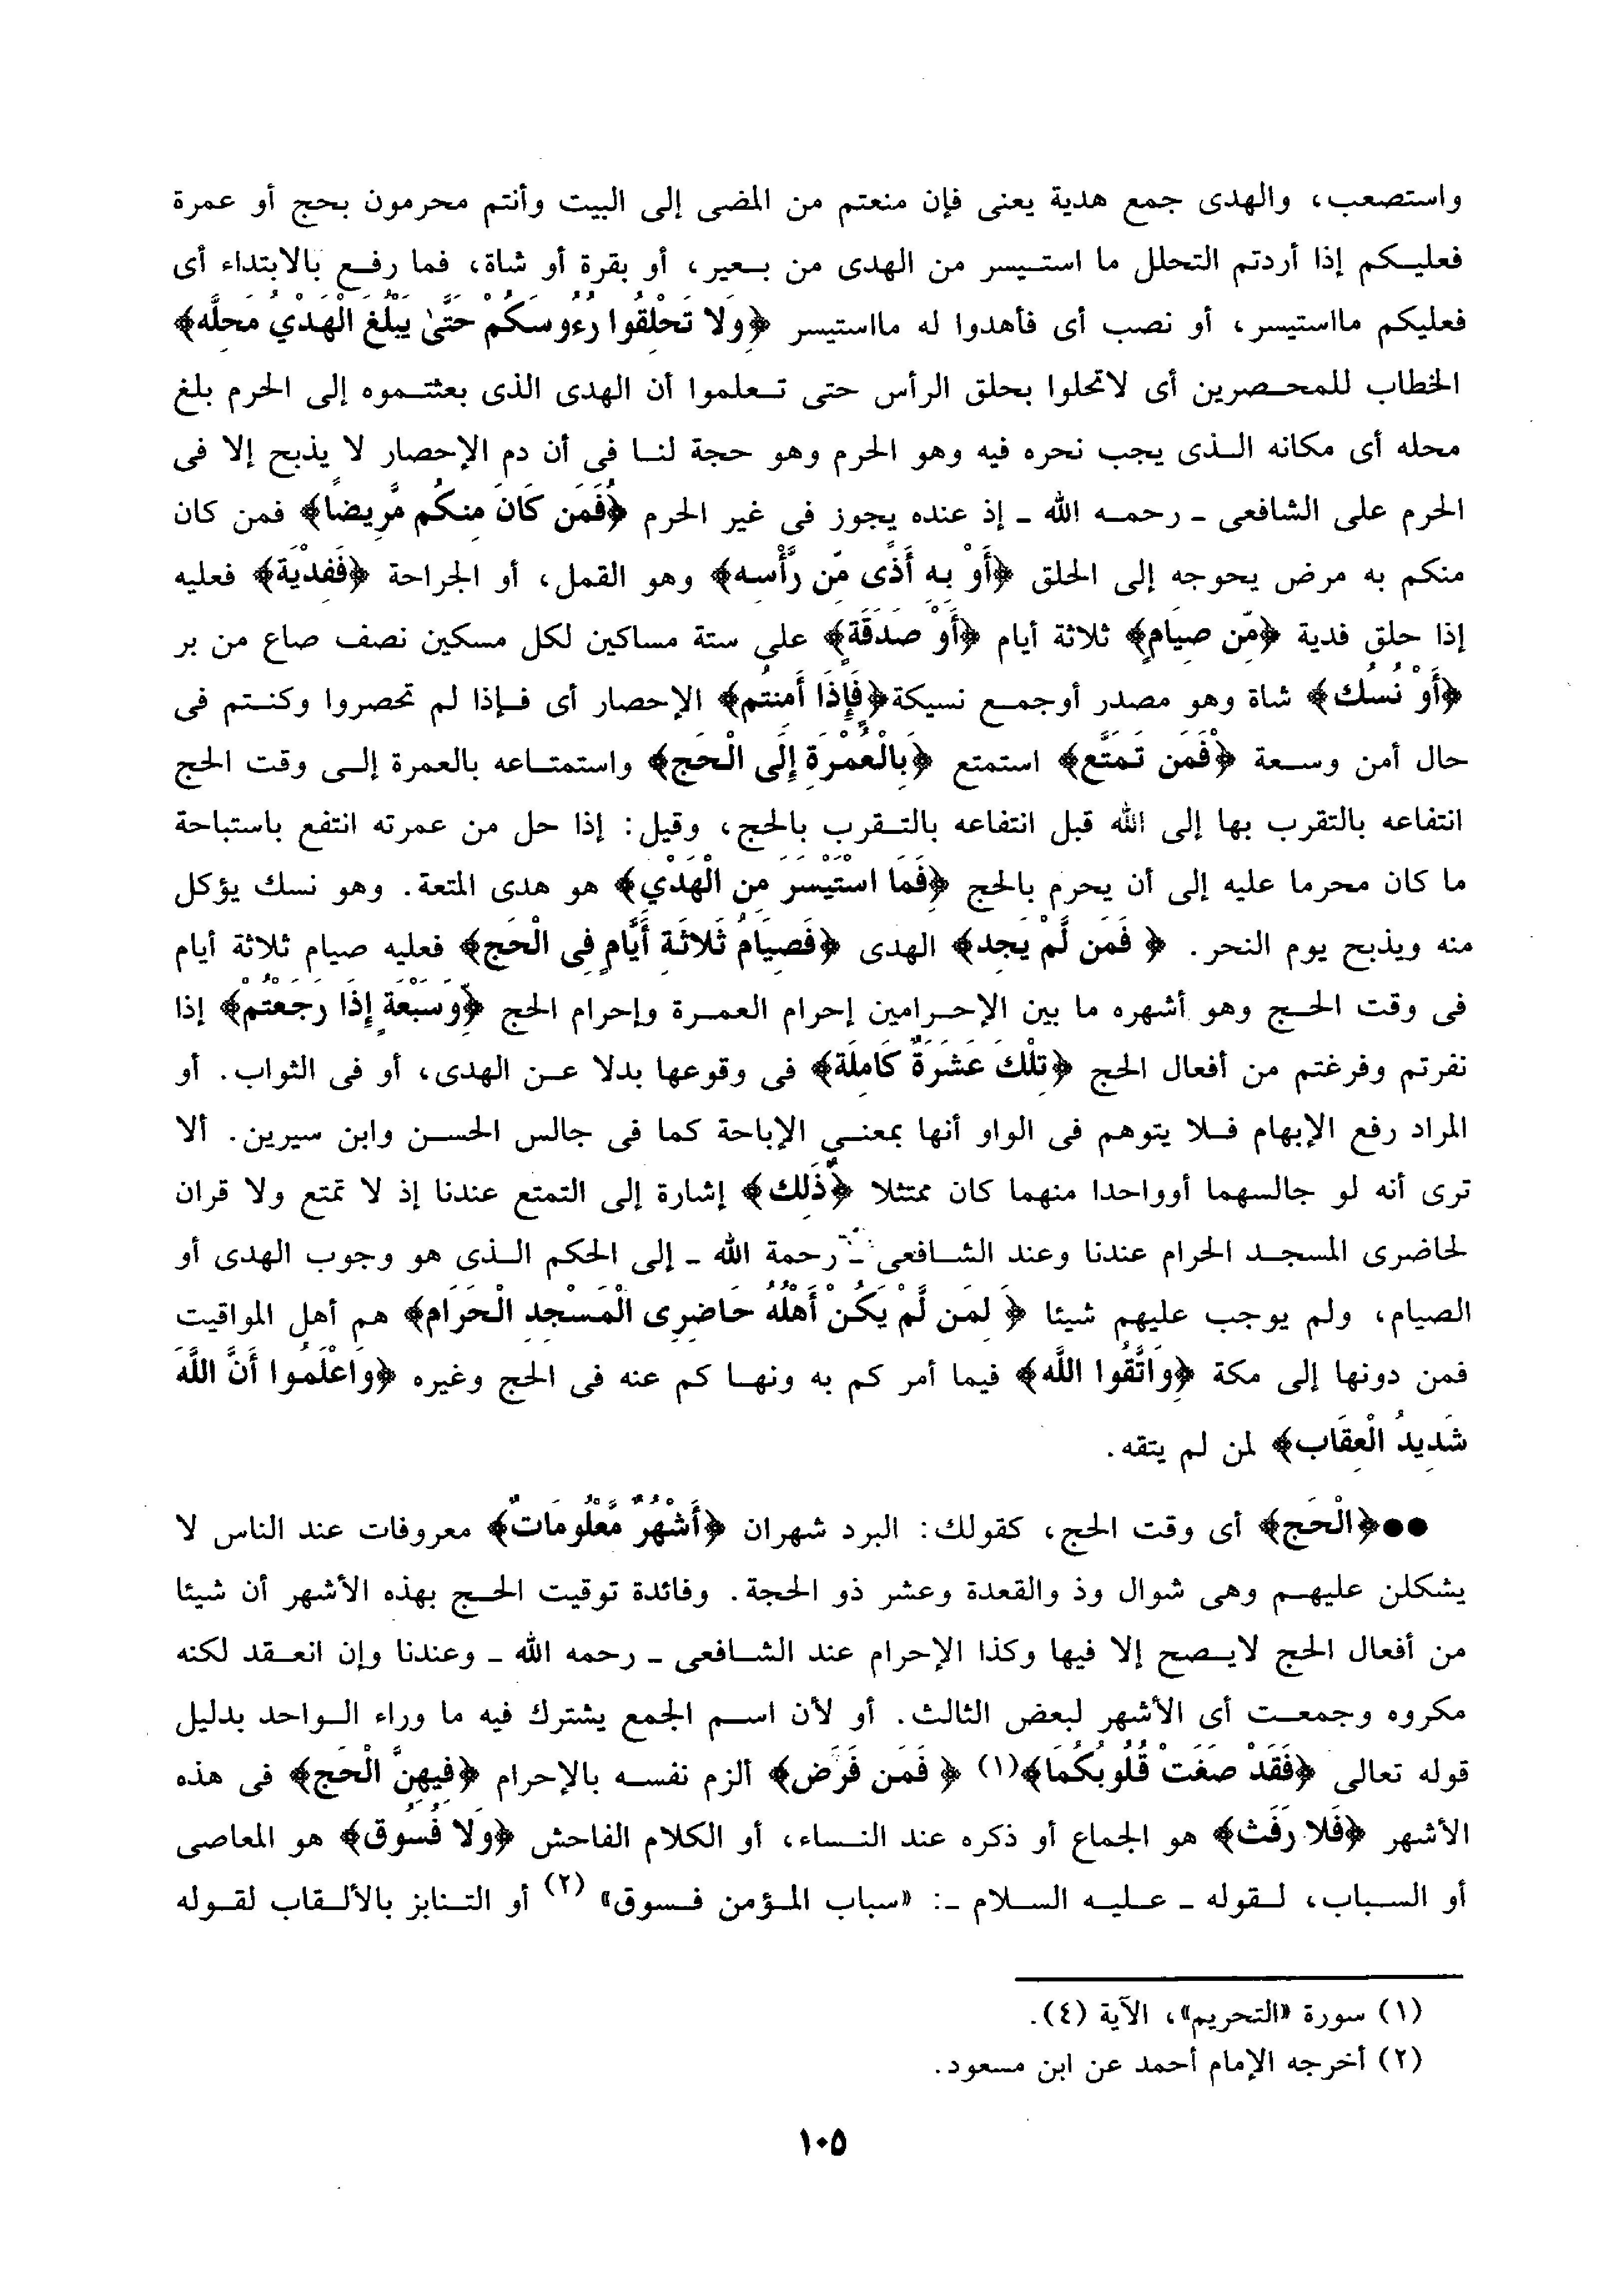 واستصعب، والهدى جمع هدية يعنى فإن منعتم من المضى إلى البيت وأنتم محرمون بحج أو عمرة
فعليكم إذا أردتم التحلل ما استيسر من الهدى من بعير، أو بقرة أو شاة، فما رفع بالابتداء أى
فعليكم مااستيسر، أو نصب أى فأهدوا له مااستيسر ﴿وَلا تَحْلِقُوا رُءُوسَكُمْ حَتَّىٰ يَبْلُغَ الْهَدْيُ مَحِلَّه﴾
الخطاب للمحصرين أى لاتحلوا بحلق الرأس حتى تعلموا أن الهدى الذى بعثتموه إلى الحرم بلغ
محله أى مكانه الذى يجب نحره فيه وهو الحرم وهو حجة لنا فى أن دم الإحصار لا يذبح إلا فى
الحرم على الشافعى - رحمه الله - إذ عنده يجوز فى غير الحرم ﴿فَمَن كَانَ مِنكُم مَّرِيضًا﴾ فمن كان
منكم به مرض يحوجه إلى الحلق ﴿أَوْ بِهِ أَذًى مِّن رَّأْسِه﴾ وهو القمل، أو الجراحة ﴿فَفِدْيَة﴾ فعليه
إذا حلق فدية ﴿مِّن صِيَامٍ﴾ ثلاثة أيام ﴿أَوْ صَدَقَةٍ﴾ على ستة مساكين لكل مسكين نصف صاع من بر
﴿أَوْ نُسُك﴾ شاة وهو مصدر أوجمع نسيكة ﴿فَإِذَا أَمِنتُم﴾ الإحصار أى فإذا لم تحصروا وكنتم فى
حال أمن وسعة ﴿فَمَن تَمَتَّع﴾ استمتع ﴿بِالْعُمْرَةِ إِلَى الْحَج﴾ واستمتاعه بالعمرة إلى وقت الحج
انتفاعه بالتقرب بها إلى الله قبل انتفاعه بالتقرب بالحج، وقيل: إذا حل من عمرته انتفع باستباحة
ما كان محرما عليه إلى أن يحرم بالحج ﴿فَمَا اسْتَيْسَرَ مِنَ الْهَدْيِ﴾ هو هدى المتعة. وهو نسك يؤكل
منه ويذبح يوم النحر. ﴿ فَمَن لَّمْ يَجِد﴾ الهدى ﴿فَصِيَامُ ثَلاثَةِ أَيَّامٍ فِى الْحَج﴾ فعليه صيام ثلاثة أيام
فى وقت الحج وهو أشهره ما بين الإحرامين إحرام العمرة وإحرام الحج ﴿وَسَبْعَةٍ إِذَا رَجَعْتُمْ﴾ إذا
نفرتم وفرغتم من أفعال الحج ﴿تِلْكَ عَشَرَةٌ كَامِلَة﴾ فى وقوعها بدلا عن الهدى، أو فى الثواب. أو
المراد رفع الإبهام فلا يتوهم فى الواو أنها بمعنى الإباحة كما فى جالس الحسن وابن سيرين. ألا
ترى أنه لو جالسهما أوواحدا منهما كان ممتثلا ﴿ذَلِك﴾ إشارة إلى التمتع عندنا إذ لا تمتع ولا قران
لحاضرى المسجد الحرام عندنا وعند الشافعى - رحمة الله - إلى الحكم الذى هو وجوب الهدى أو
الصيام، ولم يوجب عليهم شيئا ﴿ لِمَن لَّمْ يَكُنْ أَهْلُهُ حَاضِرِى الْمَسْجِدِ الْحَرَام﴾ هم أهل المواقيت
فمن دونها إلى مكة ﴿وَاتَّقُوا اللَّه﴾ فيما أمر كم به ونها كم عنه فى الحج وغيره ﴿وَاعْلَمُوا أَنَّ اللَّهَ
شَدِيدُ الْعِقَاب﴾ لمن لم يتقه.
●●﴿الْحَج﴾ أى وقت الحج، كقولك: البرد شهران ﴿أَشْهُرٌ مَّعْلُومَاتٌ﴾ معروفات عند الناس لا
يشكلن عليهم وهى شوال وذ والقعدة وعشر ذو الحجة. وفائدة توقيت الحج بهذه الأشهر أن شيئا
من أفعال الحج لايصح إلا فيها وكذا الإحرام عند الشافعى - رحمه الله - وعندنا وإن انعقد لكنه
مكروه وجمعت أى الأشهر لبعض الثالث. أو لأن اسم الجمع يشترك فيه ما وراء الواحد بدليل
قوله تعالى ﴿فَقَدْ صَغَتْ قُلُوبُكُمَا﴾(١) ﴿ فَمَن فَرَض﴾ ألزم نفسه بالإحرام ﴿فِيهِنَّ الْحَج﴾ فى هذه
الأشهر ﴿فَلا رَفَث﴾ هو الجماع أو ذكره عند النساء، أو الكلام الفاحش ﴿وَلا فُسُوق﴾ هو المعاصى
أو السباب، لقوله - عليه السلام -: «سباب المؤمن فسوق» (٢) أو التنابز بالألقاب لقوله
(١) سورة «التحريم»، الآية (٤).
(٢) أخرجه الإمام أحمد عن ابن مسعود.
١٠٥